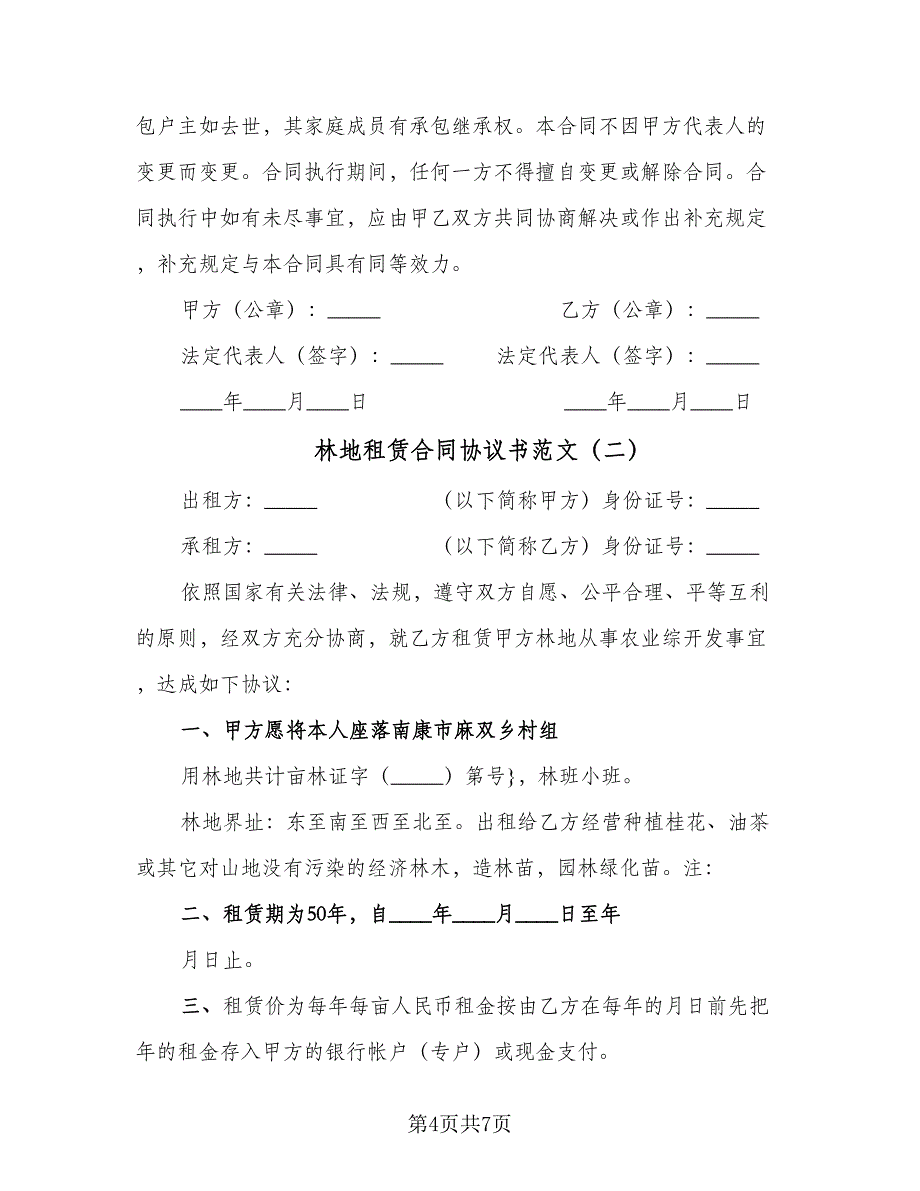 包户主如去世，其家庭成员有承包继承权。本合同不因甲方代表人的
变更而变更。合同执行期间，任何一方不得擅自变更或解除合同。合
同执行中如有未尽事宜，应由甲乙双方共同协商解决或作出补充规定
，补充规定与本合同具有同等效力。
甲方（公章）：_____ 乙方（公章）：_____
法定代表人（签字）：_____ 法定代表人（签字）：_____
____年____月____日 ____年____月____日
林地租赁合同协议书范文（二）
出租方：_____ （以下简称甲方）身份证号：_____
承租方：_____ （以下简称乙方）身份证号：_____
依照国家有关法律、法规，遵守双方自愿、公平合理、平等互利
的原则，经双方充分协商，就乙方租赁甲方林地从事农业综开发事宜
，达成如下协议：
一、甲方愿将本人座落南康市麻双乡村组
用林地共计亩林证字（_____）第号}，林班小班。
林地界址：东至南至西至北至。出租给乙方经营种植桂花、油茶
或其它对山地没有污染的经济林木，造林苗，园林绿化苗。注：
二、租赁期为50年，自____年____月____日至年
月日止。
三、租赁价为每年每亩人民币租金按由乙方在每年的月日前先把
年的租金存入甲方的银行帐户（专户）或现金支付。
第4页共7页